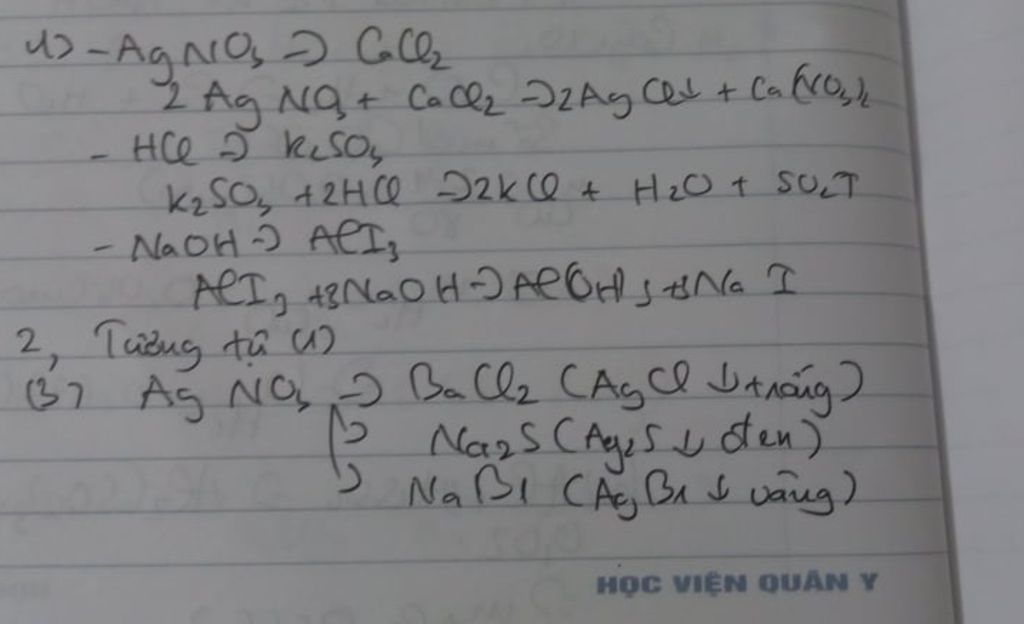 1) - AgNO3 => CaCl2
2 AgNO3 + CaCl2 -> 2AgCl↓ + Ca(NO3)2
- HCl => K2SO3
K2SO3 + 2HCl -> 2KCl + H2O + SO2↑
- NaOH -> AlI3
AlI3 + 3NaOH -> Al(OH)3 + 3NaI
2, Tương tự (1)
(3) AgNO3 => BaCl2 (AgCl ↓ trắng)
=> Na2S (Ag2S ↓ đen)
=> NaBr (AgBr ↓ vàng)
HỌC VIỆN QUÂN Y